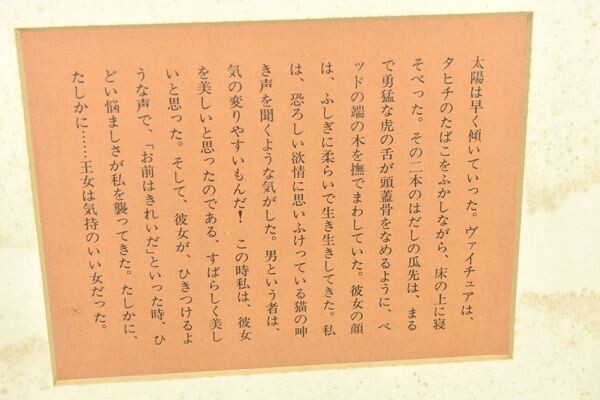 太陽は早く傾いていった。ヴァイチュアは、
タヒチのたばこをふかしながら、床の上に寝
そべった。その二本のはだしの瓜先は、まる
で勇猛な虎の舌が頭蓋骨をなめるように、ベ
ッドの端の木を撫でまわしていた。彼女の顔
は、ふしぎに柔らいで生き生きしてきた。私
は、恐ろしい欲情に思いふけっている猫の呻
き声を聞くような気がした。男という者は、
気の変りやすいもんだ！　この時私は、彼女
を美しいと思ったのである、すばらしく美し
いと思った。そして、彼女が、ひきつけるよ
うな声で、「お前はきれいだ」といった時、ひ
どい悩ましさが私を襲ってきた。たしかに、
たしかに……王女は気持のいい女だった。